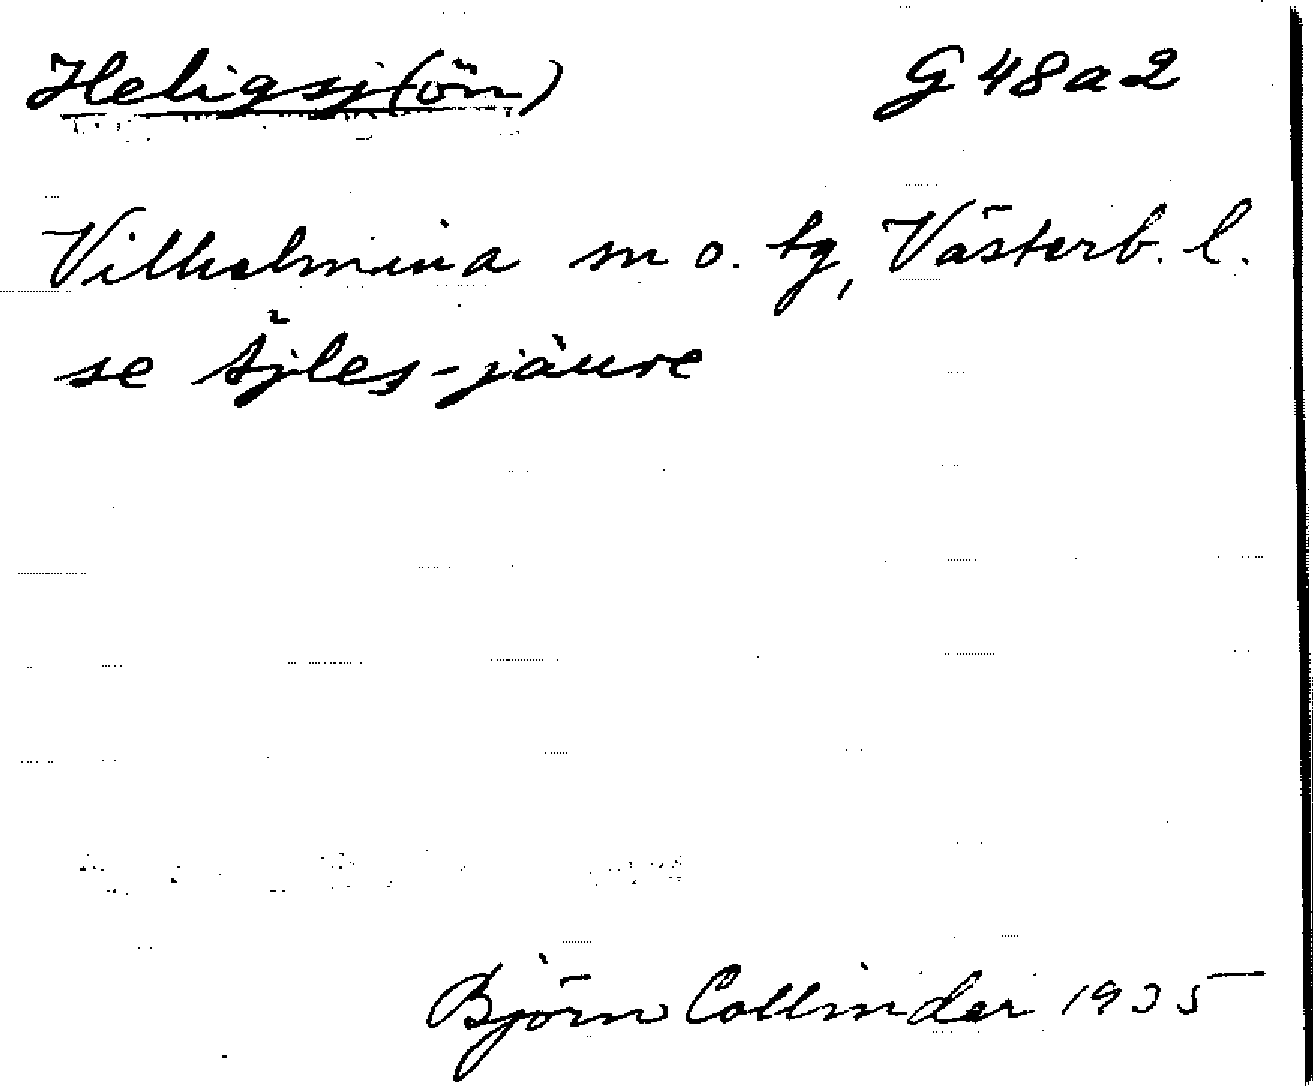 Heligsj(ön) G 48 a 2
Vilhelmina sn o. tg, Västerb. l.
se Äjles-jäure
Björn Collinder 1935